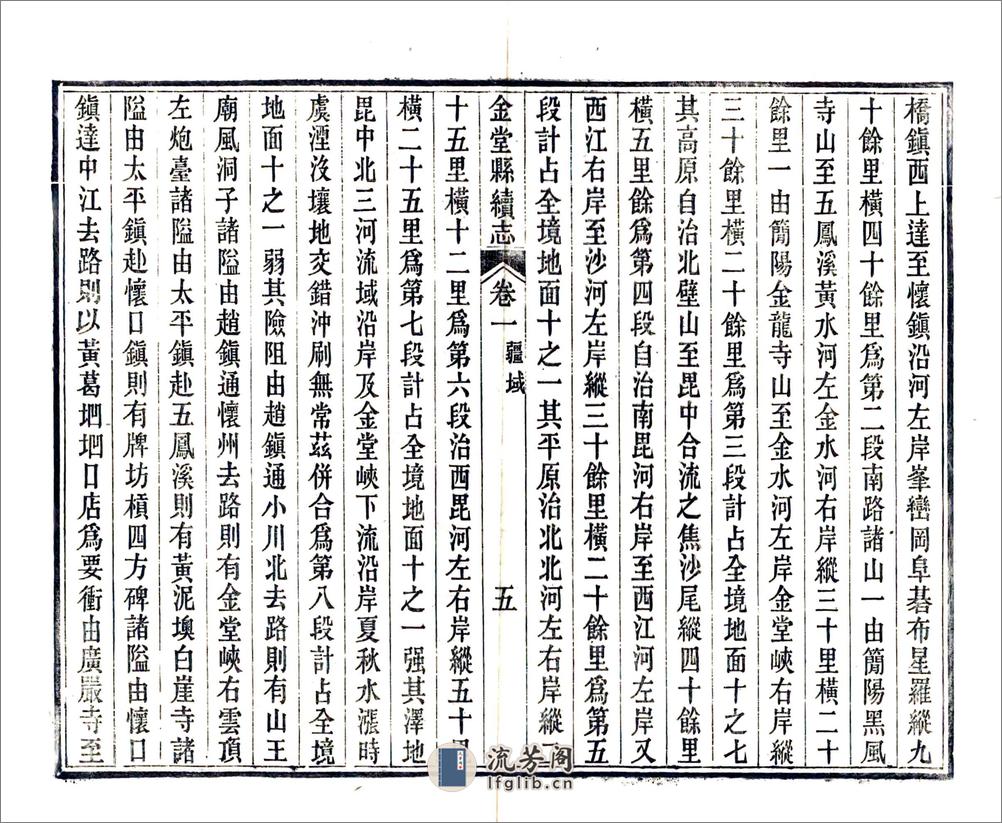 橋鎮西上達至懷鎮沿河左岸峯巒岡阜碁布星羅縱九
十餘里橫四十餘里爲第二段南路諸山一由簡陽黑風
寺山至五鳳溪黃水河左金水河右岸縱三十里橫二十
餘里一由簡陽金龍寺山至金水河左岸金堂峽右岸縱
三十餘里橫二十餘里爲第三段計占全境地面十之七
其高原自治北壁山至毘中合流之焦沙尾縱四十餘里
橫五里餘爲第四段自治南毘河右岸至西江河左岸又
西江右岸至沙河左岸縱三十餘里橫二十餘里爲第五
段計占全境地面十之一其平原治北北河左右岸縱二
金堂縣續志 卷一 疆域 五
十五里橫十二里爲第六段治西毘河左右岸縱五十里
橫二十五里爲第七段計占全境地面十之一强其澤地
毘中北三河流域沿岸及金堂峽下流沿岸夏秋水漲時
虞湮沒壤地交錯沖刷無常茲併合爲第八段計占全境
地面十之一弱其險阻由趙鎮通小川北去路則有山王
廟風洞子諸隘由趙鎮通懷州去路則有金堂峽右雲頂
左炮臺諸隘由太平鎮赴五鳳溪則有黃泥墺白崖寺諸
隘由太平鎮赴懷口鎮則有牌坊槓四方碑諸隘由懷口
鎮達中江去路則以黃葛埡埡口店爲要衝由廣嚴寺至
流芳阁
lfglib.cn